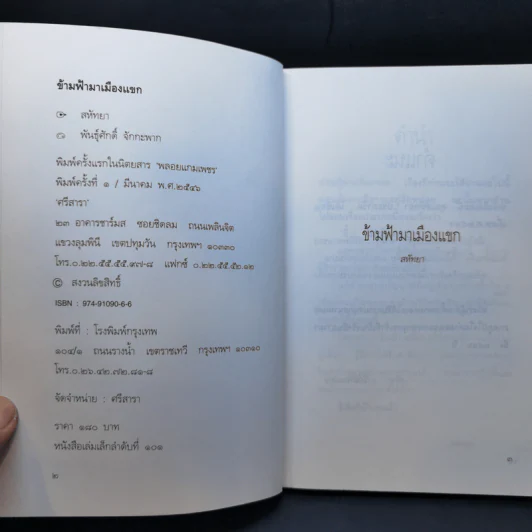 ข้ามฟ้ามาเมืองแขก
สหัทยา
พันธุ์ศักดิ์ จักกะพาก
พิมพ์ครั้งแรกในนิตยสาร 'พลอยแกมเพชร'
พิมพ์ครั้งที่ ๑ / มีนาคม พ.ศ.๒๕๔๖
'ศรีสารา'
๒๓ อาคารชาร์มส ซอยชิดลม ถนนเพลินจิต
แขวงลุมพินี เขตปทุมวัน กรุงเทพฯ ๑๐๓๓๐
โทร.๐.๒๒.๕๕.๕๕.๙๗-๘ แฟกซ์ ๐.๒๒.๕๕.๕๒.๑๒
© สงวนลิขสิทธิ์
ISBN : 974-91090-6-6
พิมพ์ที่ : โรงพิมพ์กรุงเทพ
๑๐๔/๑ ถนนรางน้ำ เขตราชเทวี กรุงเทพฯ ๑๐๓๑๐
โทร.๐.๒๖.๔๒.๗๒.๘๑-๘
จัดจำหน่าย : ศรีสารา
ราคา ๑๘๐ บาท
หนังสือเล่มเล็กลำดับที่ ๑๐๑
๒
ข้ามฟ้ามาเมืองแขก
สหัทยา
๓